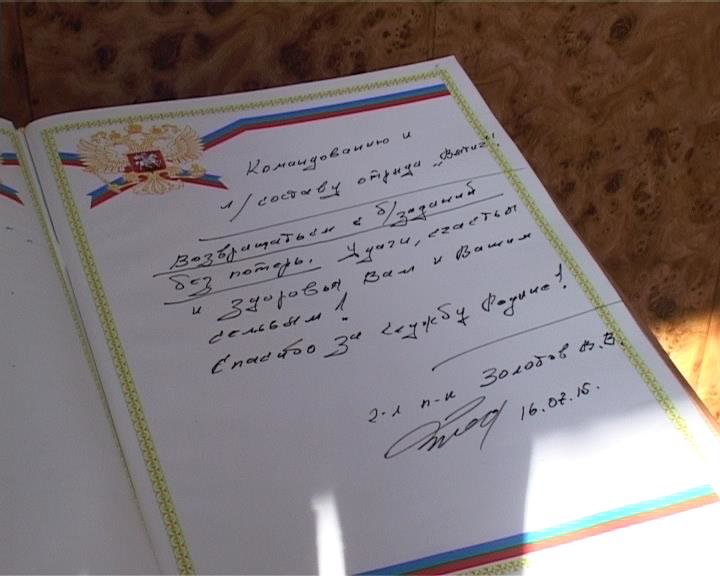 Командованию и
л/составу отряда „Витязь".
Возвращаться с б/заданий
без потерь. Удачи, счастья
и здоровья Вам и Вашим
семьям!
Спасибо за службу Родине!
г-л п-к Золотов В.В.
16.07.15.